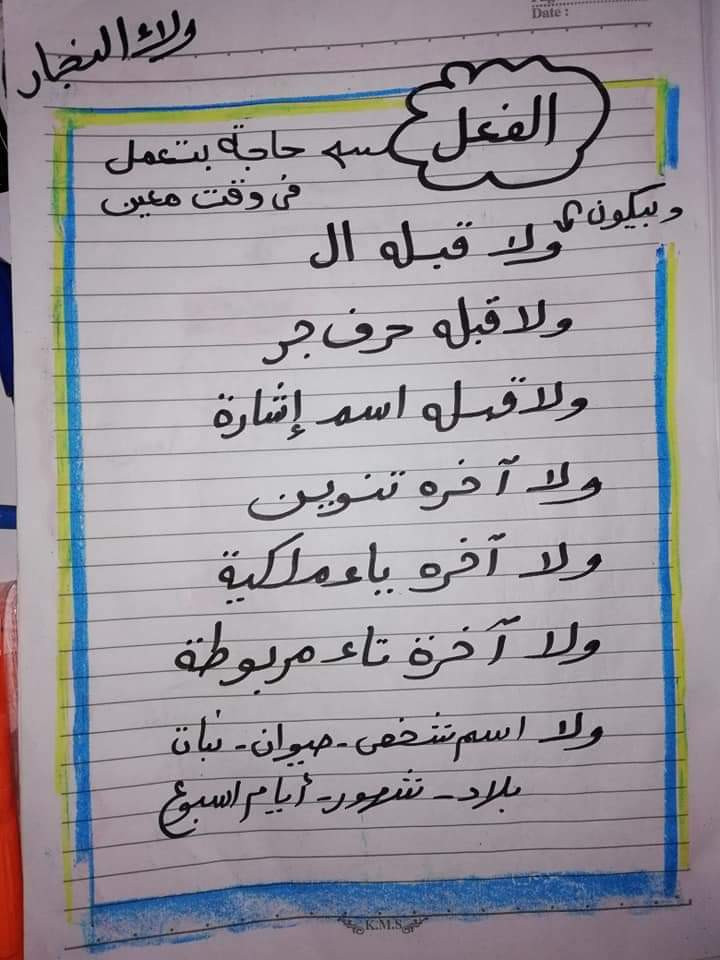 Date :
ولاء النجار
الفعل
حاجة بتعمل
فى وقت معين
وبيكون
ولا قبله ال
ولا قبله حرف جر
ولا قبله اسم إشارة
ولا آخره تنوين
ولا آخره ياء ملكية
ولا آخرة تاء مربوطة
ولا اسم شخص - حيوان - نبات
بلاد - شهور - أيام اسبوع
K.M.S